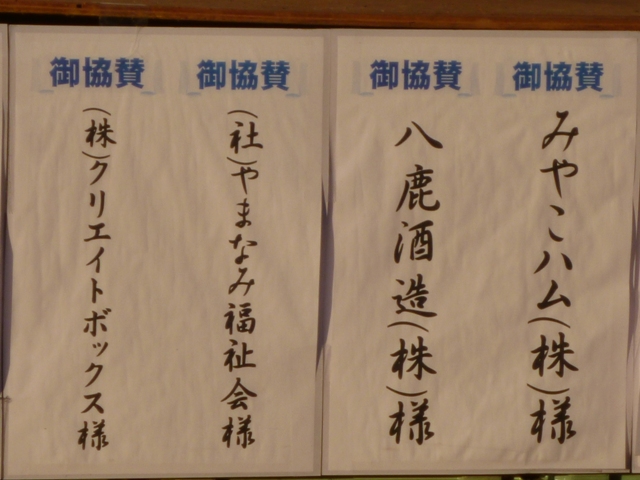 御協賛
みやこハム(株)様
御協賛
八鹿酒造(株)様
御協賛
(社)やまなみ福祉会様
御協賛
(株)クリエイトボックス様